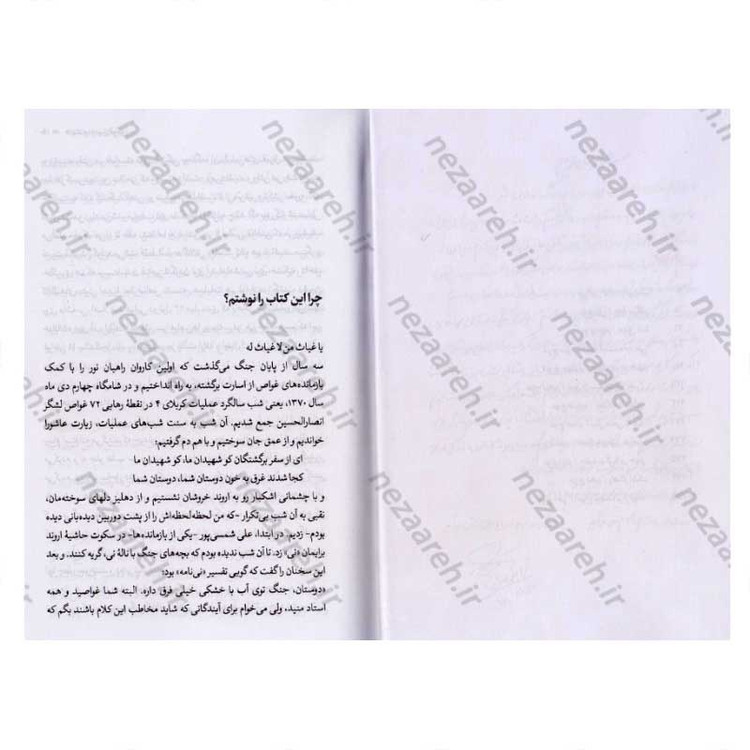 چرا این کتاب را نوشتم؟
یا غیاث من لا غیاث له
سه سال از پایان جنگ می‌گذشت که اولین کاروان راهیان نور را با کمک
بازمانده‌های غواص از اسارت برگشته، به راه انداختیم و در شامگاه چهارم دی ماه
سال ۱۳۷۰، یعنی شب سالگرد عملیات کربلای ۴ در نقطهٔ رهایی ۷۲ غواص لشگر
انصارالحسین جمع شدیم. آن شب به سنت شب‌های عملیات، زیارت عاشورا
خواندیم و از عمق جان سوختیم و با هم دم گرفتیم:
ای از سفر برگشتگان کو شهیدان ما، کو شهیدان ما
کجا شدند غرق به خون دوستان شما، دوستان شما
و با چشمانی اشکبار رو به اروند خروشان نشستیم و از دهلیز دلهای سوخته‌مان،
نقبی به آن شب بی‌تکرار -که من لحظه‌لحظه‌اش را از پشت دوربین دیده‌بانی دیده
بودم- زدیم. در ابتدا، علی شمسی‌پور -یکی از بازمانده‌ها- در سکوت حاشیهٔ اروند
برایمان «نی» زد. تا آن شب ندیده بودم که بچه‌های جنگ با نالهٔ نی، گریه کنند. و بعد
این سخنان را گفت که گویی تفسیر «نی‌نامه» بود:
«دوستان، جنگ توی آب با خشکی خیلی فرق داره. البته شما غواصید و همه
استاد منید. ولی می‌خوام برای آیندگانی که شاید مخاطب این کلام باشند بگم که
nezaareh.ir
nezaareh.ir
nezaareh.ir
nezaareh.ir
nezaareh.ir
nezaareh.ir